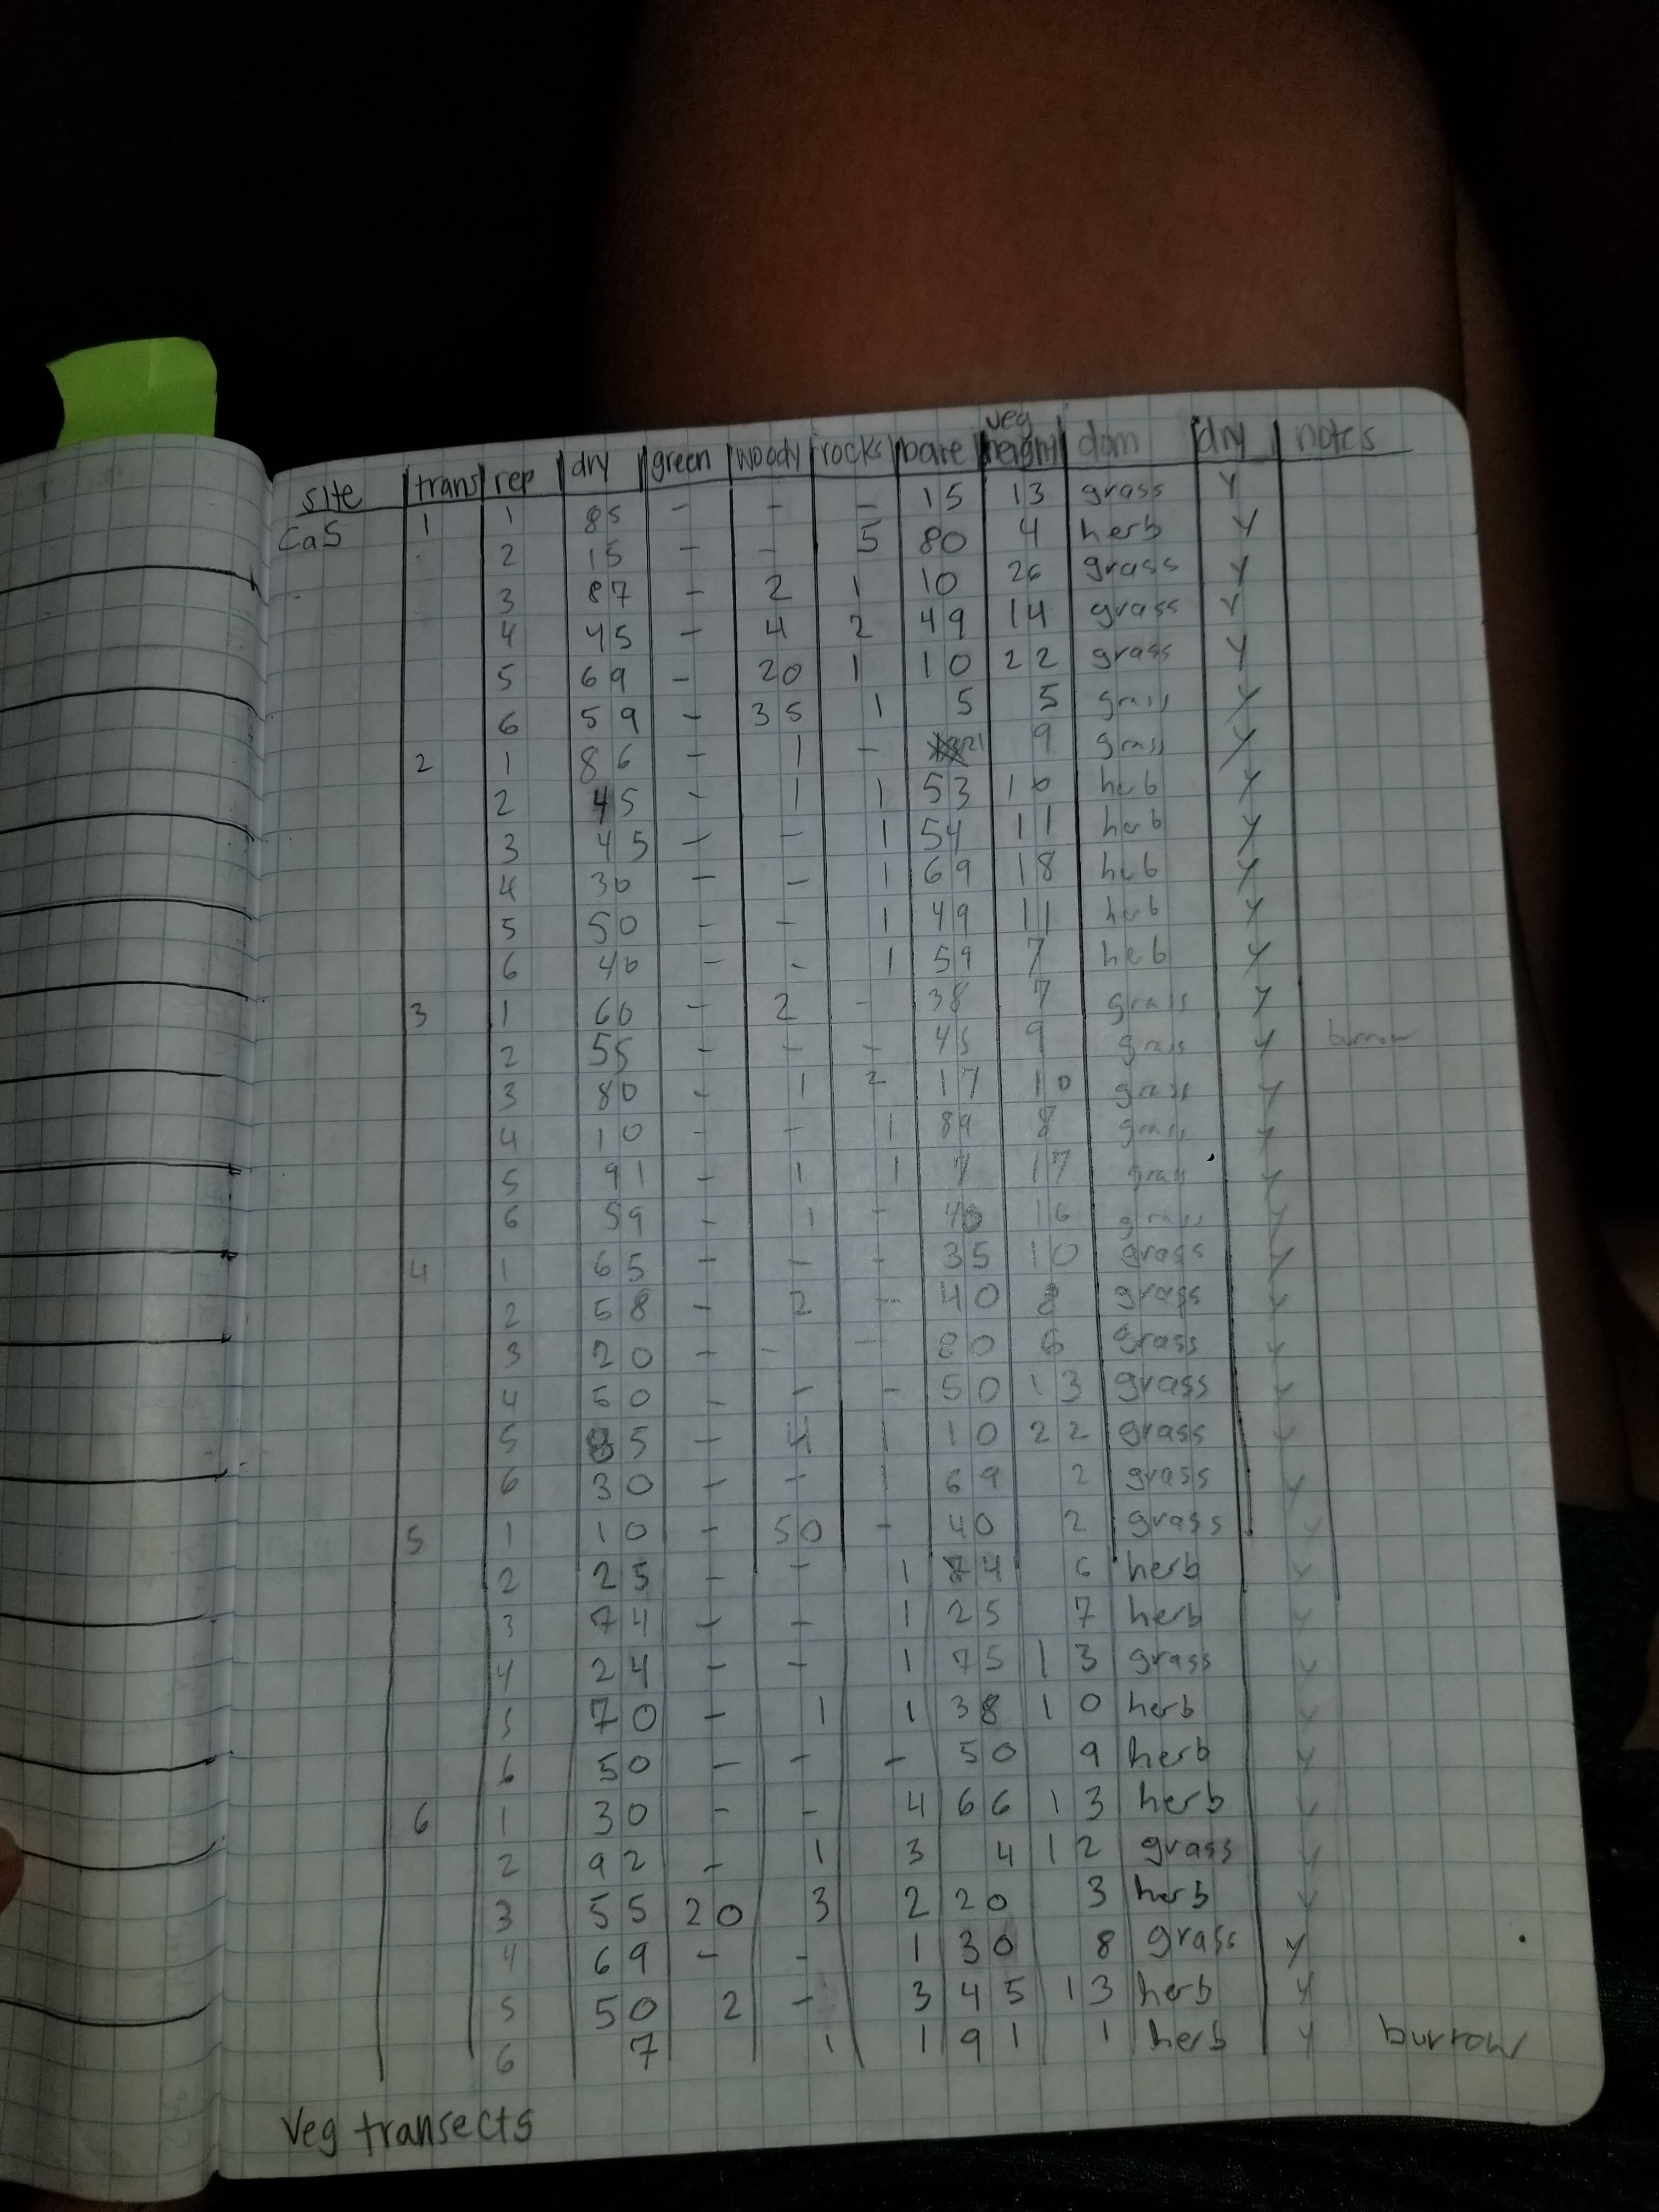 site trans rep dry green woody rocks bare veg height dom dry notes
CaS 1 1 85 - - - 15 13 grass Y
2 15 - - 5 80 4 herb Y
3 87 - 2 1 10 26 grass Y
4 45 - 4 2 49 14 grass Y
5 69 - 20 1 10 22 grass Y
6 59 - 35 1 5 5 grass Y
2 1 86 - 1 - 9 grass Y
2 45 - 1 1 53 10 herb Y
3 45 - - 1 54 11 herb Y
4 30 - - 1 69 18 herb Y
5 50 - - 1 49 11 herb Y
6 40 - - 1 59 7 herb Y
3 1 60 - 2 - 38 7 grass Y
2 55 - - - 45 9 grass Y burrow
3 80 - 1 2 17 10 grass Y
4 10 - - 1 89 8 grass Y
5 91 - 1 1 7 17 grass Y
6 59 - 1 - 40 16 grass Y
4 1 65 - - - 35 10 grass Y
2 58 - 2 - 40 8 grass Y
3 20 - - - 80 6 grass Y
4 50 - - - 50 13 grass Y
5 85 - 4 1 10 22 grass Y
6 30 - - 1 69 2 grass Y
5 1 10 - 50 - 40 2 grass Y
2 25 - - 1 74 6 herb Y
3 74 - - 1 25 7 herb Y
4 24 - - 1 75 13 grass Y
5 70 - 1 1 38 10 herb Y
6 50 - - - 50 9 herb Y
6 1 30 - - 4 66 13 herb Y
2 92 - 1 3 4 12 grass Y
3 55 20 3 2 20 3 herb Y
4 69 - - 1 30 8 grass Y
5 50 2 - 3 45 13 herb Y
6 7 1 1 91 1 herb Y burrow
Veg transects